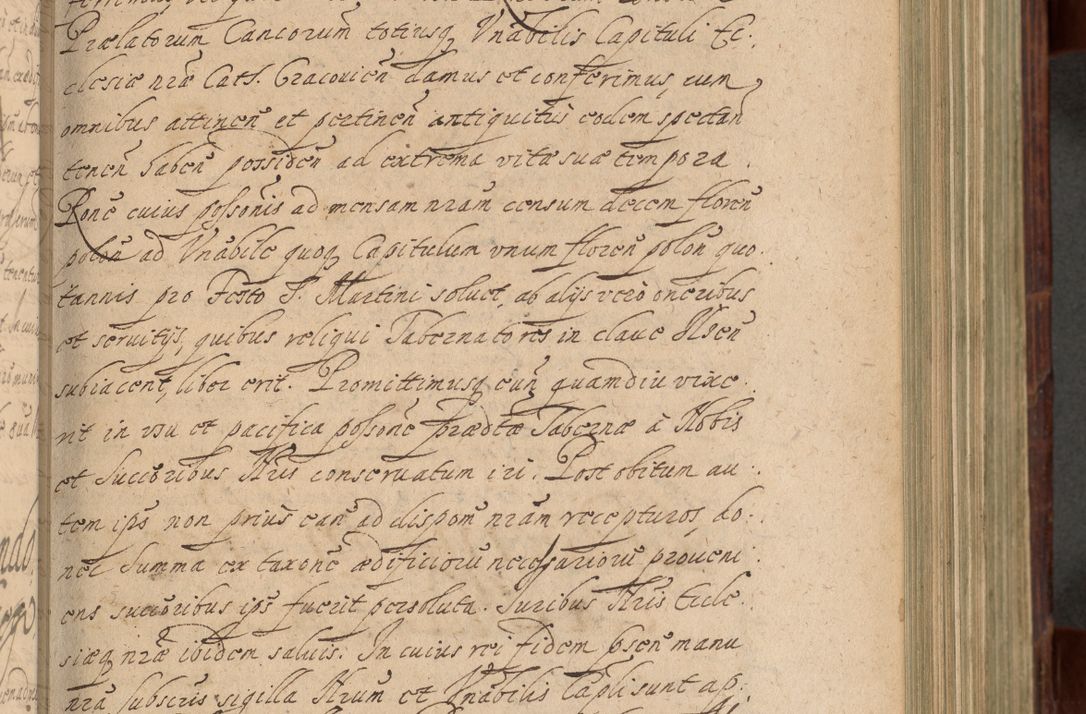 Prælatorum Cancorum totiusq Vnabilis Capituli Ec:
clesiæ nræ Cath. Cracovien damus et conferimus, cum
omnibus attinen et pertinen antiquitus eodem spectan
tenen haben possiden ad extrema vitæ suæ tempora.
Rone cuius possonis ad mensam nram censum decem floren
polon ad Vnabile quoq Capitulum vnum floren polon quo.
tannis pro Festo S. Martini soluet, ab alijs vero oneribus
et servitijs, quibus reliqui Tabernatores in clave Ilsen
subiacent, liber erit. Promittimusq eum quamdiu vixe.
rit in vsu et pacifica possone prædtæ Tabernæ à Nobis
et Succoribus Nris conservatum iri. Post obitum au.
tem ips non prius eam ad dispom nram recepturos, do.
nec Summa ex taxone ædificioru necessarioru proveni:
ens succoribus ips fuerit persoluta. Juribus Nris Eccle.
siæq nræ ibidem salvis. In cuius rei fidem psen manu
nra subscris sigilla Nrum et Vnabilis Capli sunt ap: